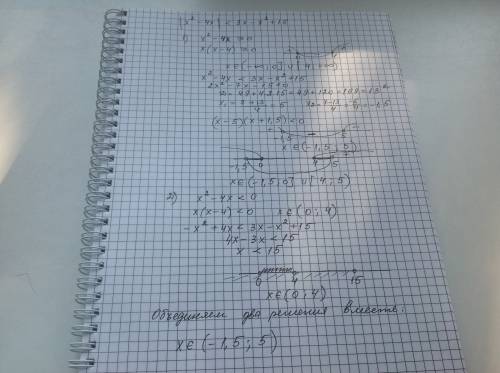 |x² - 4x| < 3x - x² + 15
1) x² - 4x ≥ 0
x(x-4) ≥ 0
0 4
x ∈ (-∞; 0] ∪ [4; +∞)
x² - 4x < 3x - x² + 15
2x² - 7x - 15 < 0
= 49 + 4·2·15 = 49 + 120 = 169 = 13²
x₁ = 7+13/4 = 5 x₂ = 7-13/4 = -6/4 = -1,5
(x-5)(x+1,5) < 0
+ -1,5 - 5 +
x ∈ (-1,5; 5)
-1,5 0 4 5
x ∈ (-1,5; 0] ∪ [4; 5)
2) x² - 4x < 0
x(x-4) < 0 x ∈ (0; 4)
-x² + 4x < 3x - x² + 15
4x - 3x < 15
x < 15
0 4 15
x ∈ (0; 4)
Объединяем два решения вместе:
x ∈ (-1,5; 5)